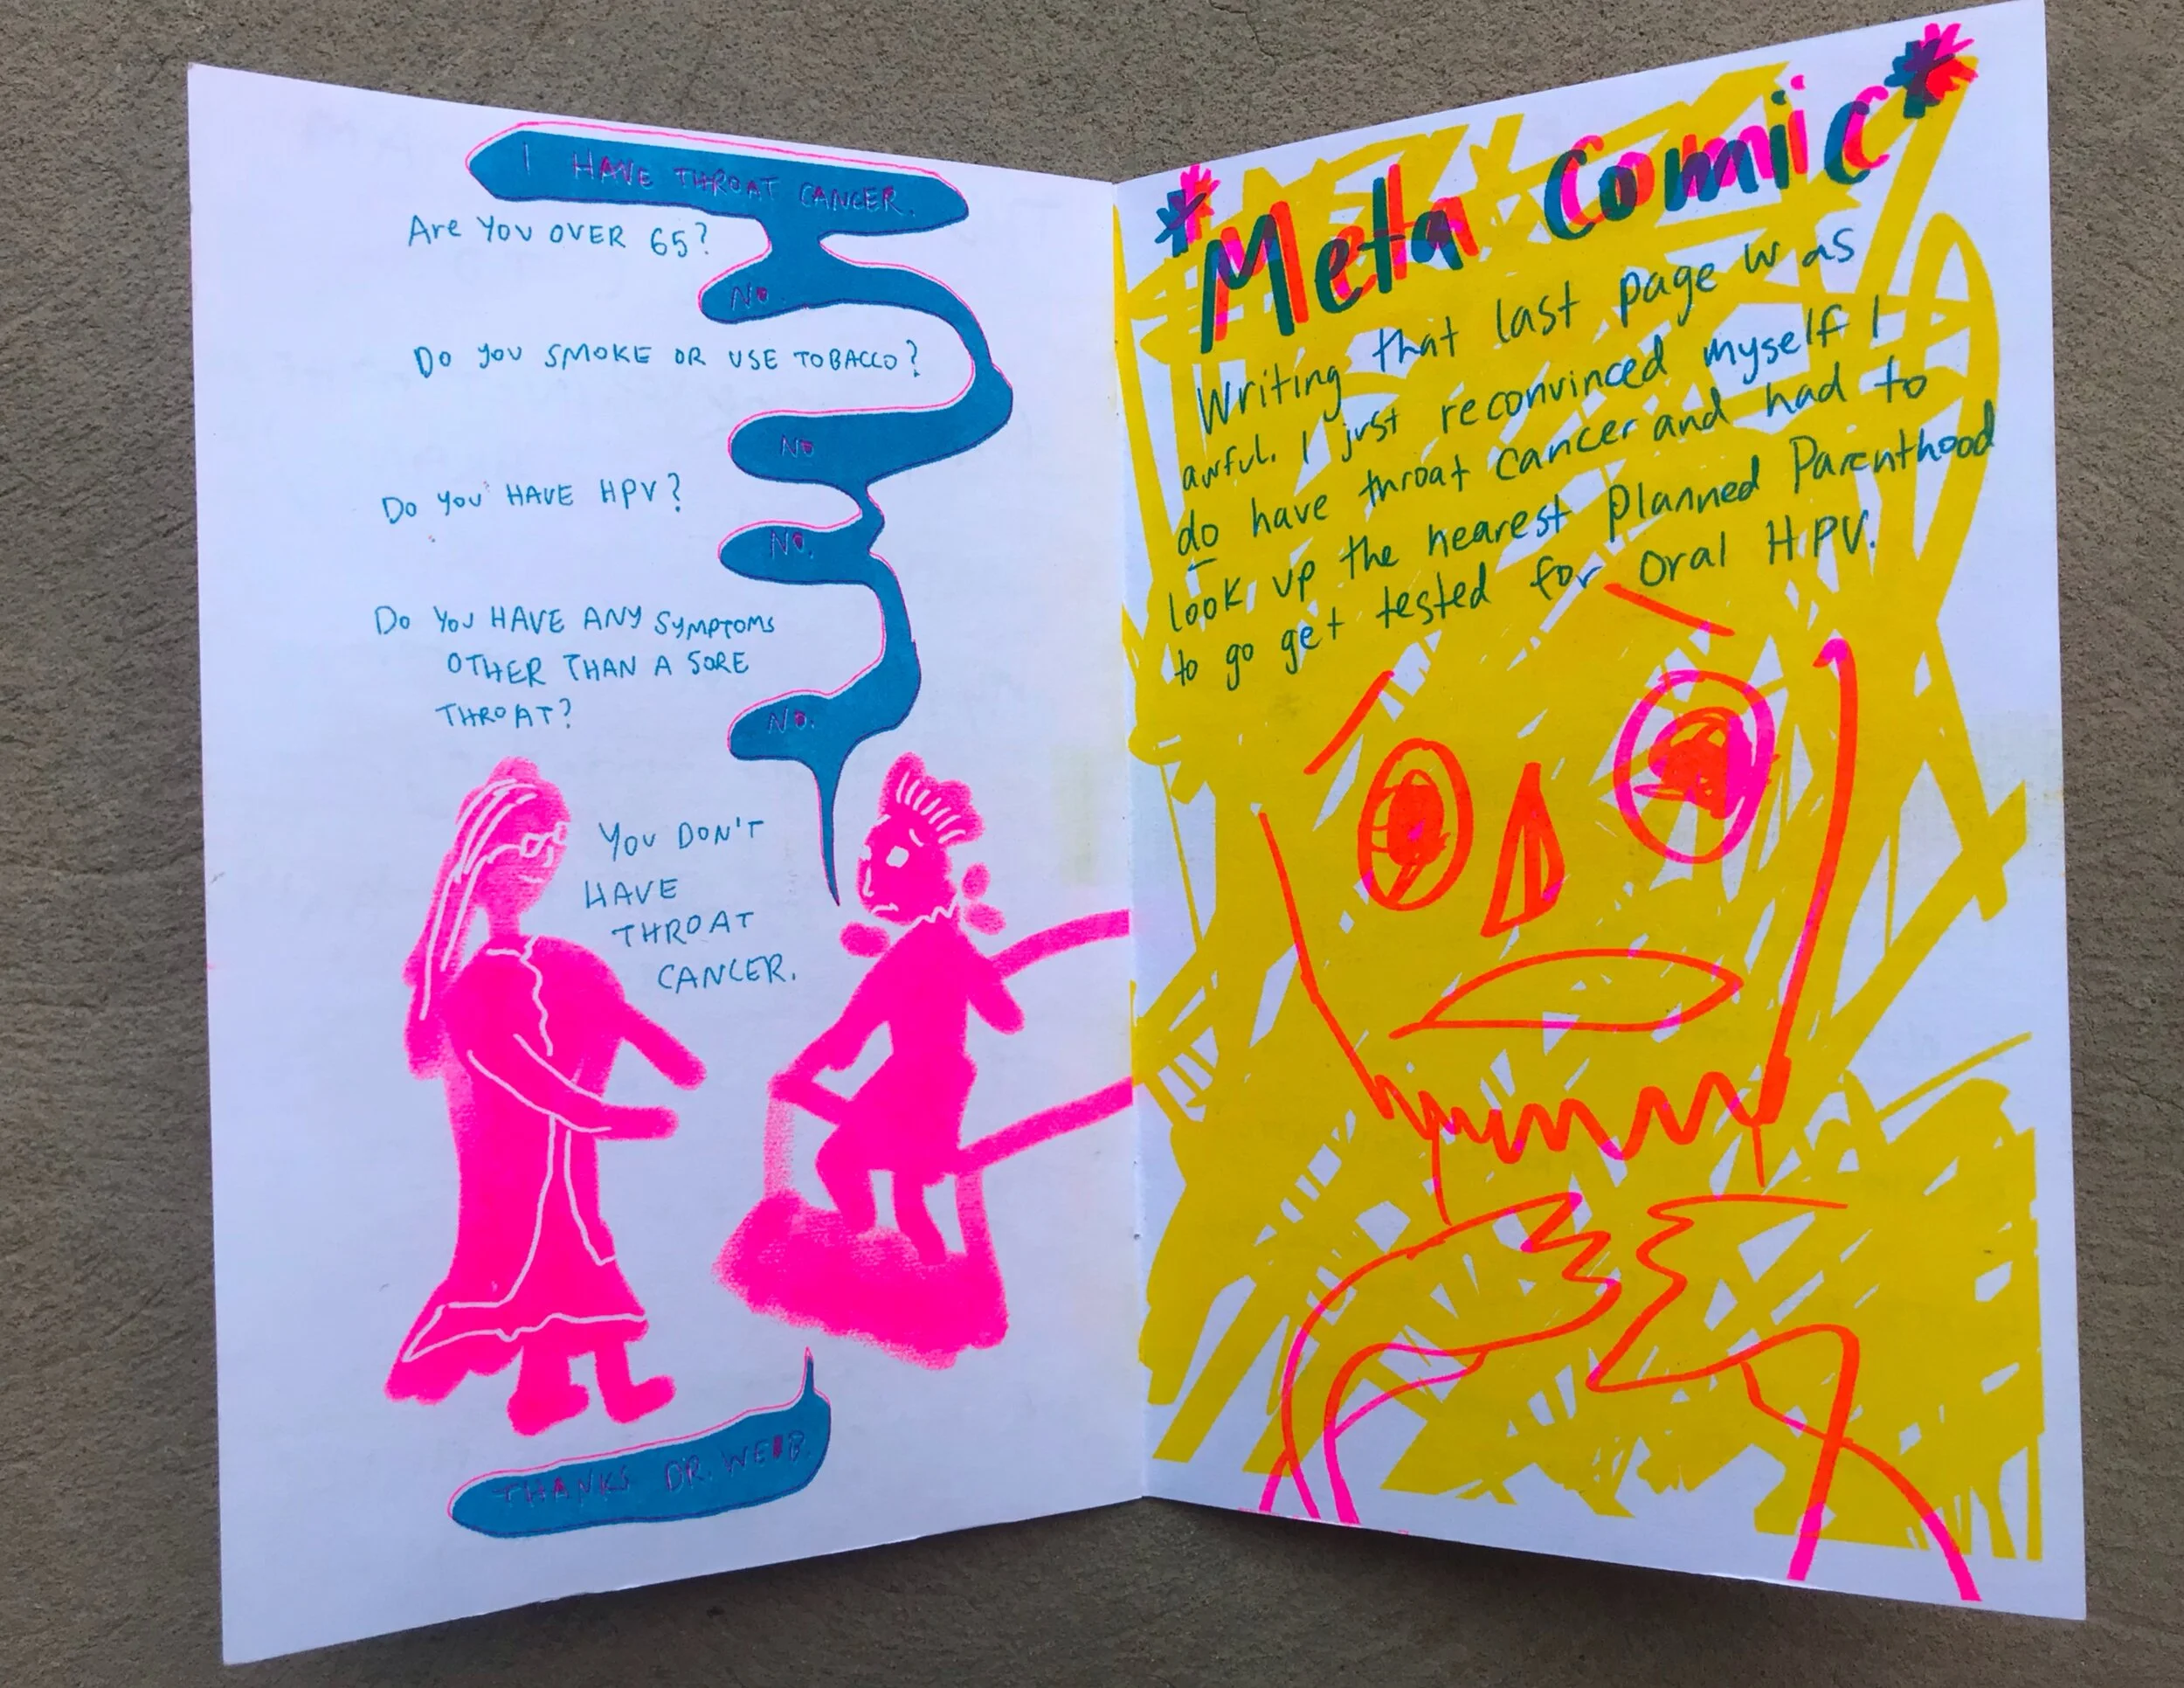 I HAVE THROAT CANCER.
Are YOU OVER 65?
NO.
DO YOU SMOKE OR USE TOBACCO?
NO
DO YOU HAVE HPV?
NO.
DO YOU HAVE ANY SYMPTOMS
OTHER THAN A SORE
THROAT?
NO.
YOU DON'T
HAVE
THROAT
CANCER.
THANKS DR. WEBB.
*Meta Comic*
Writing that last page was
awful. I just reconvinced myself I
do have throat cancer and had to
look up the nearest Planned Parenthood
to go get tested for oral HPV.